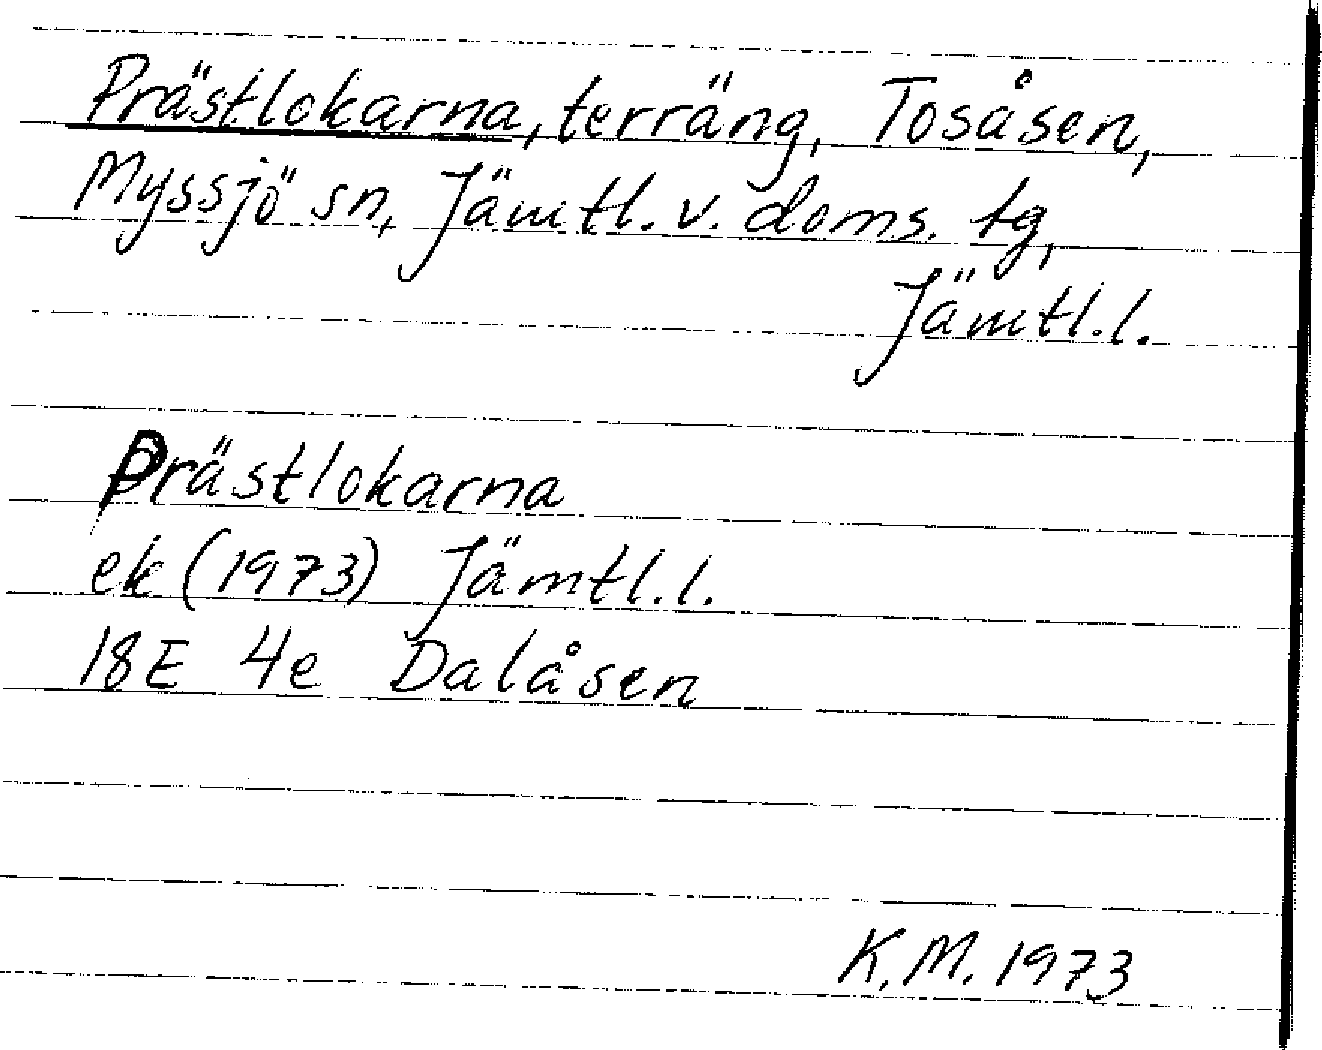 Prästlokarna, terräng, Tosåsen,
Myssjö sn, Jämtl. v. doms. tg,
Jämtl. l.
Prästlokarna
ek (1973) Jämtl. l.
18E 4e Dalåsen
K.M. 1973